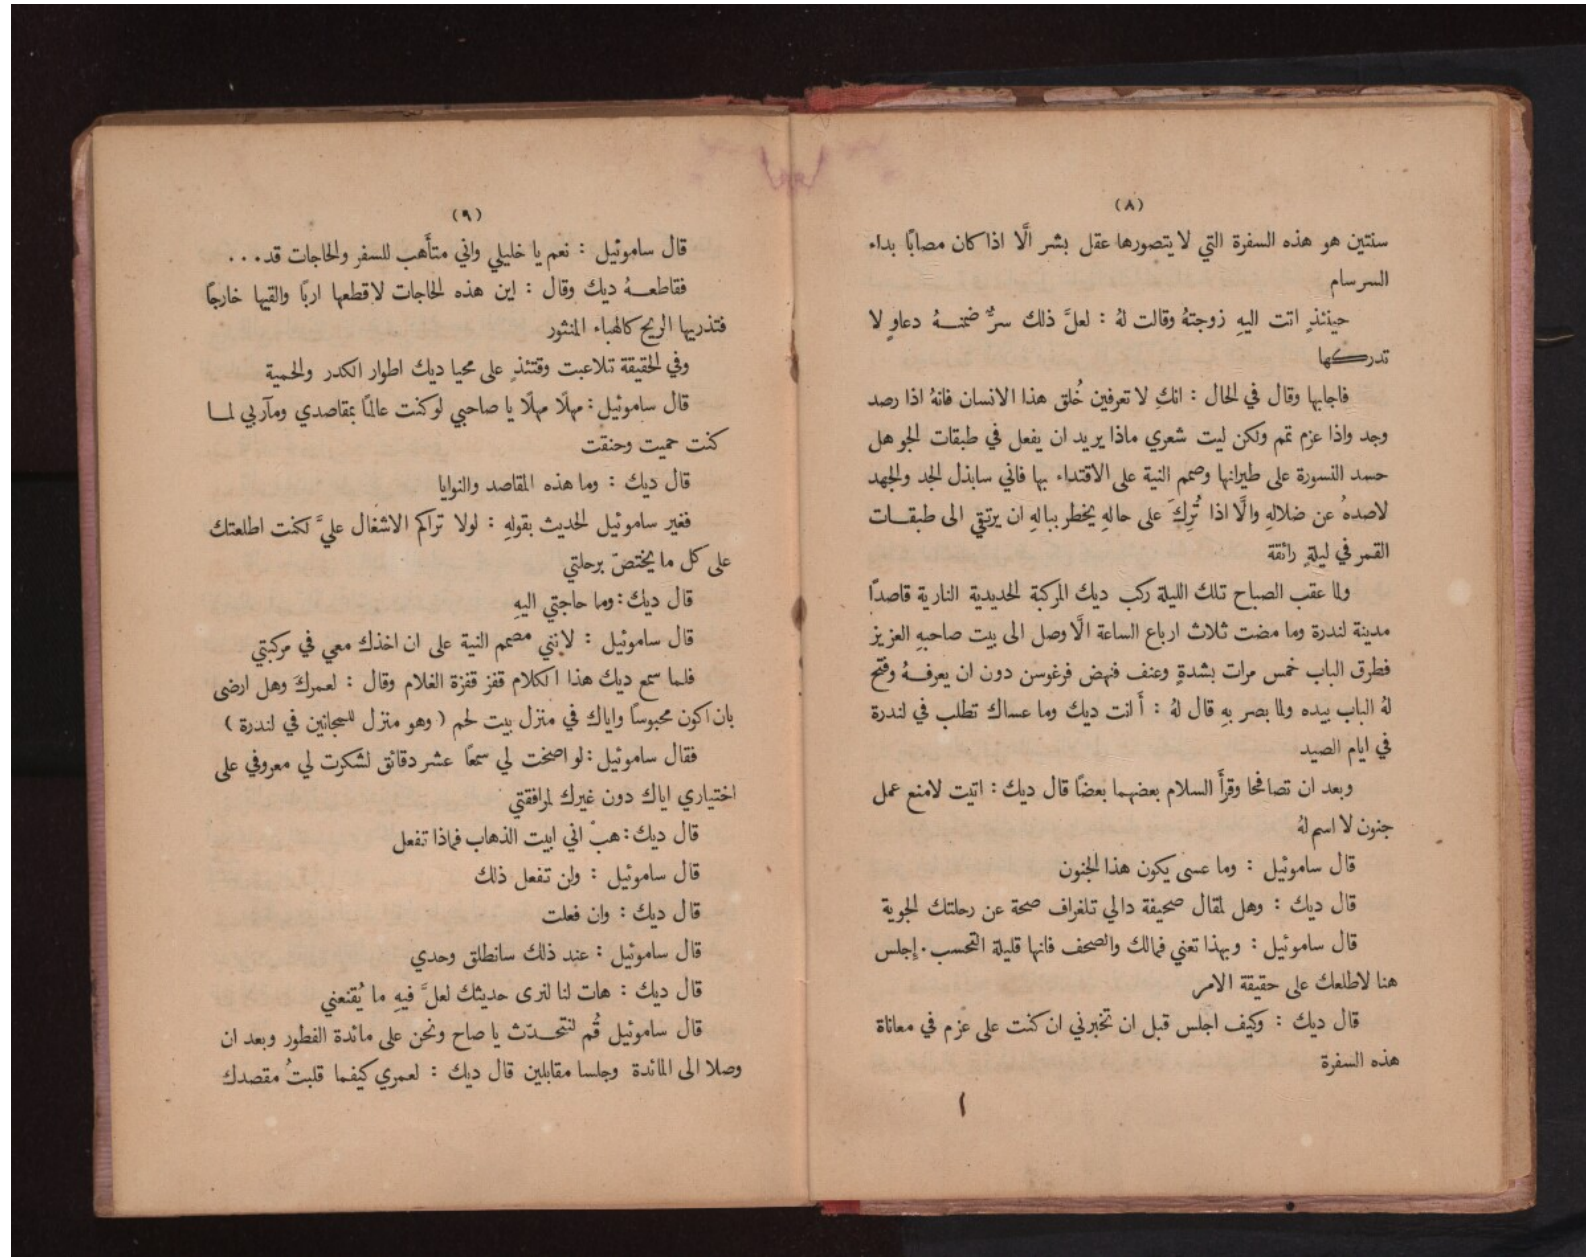 (٨)
سنتين هو هذه السفرة التي لا يتصورها عقل بشر الَّا اذا كان مصابًا بداء
السرسام
حينئذٍ اتت اليهِ زوجتهُ وقالت لهُ : لعلَّ ذلك سرٌّ ضمنــهُ دعاوٍ لا
تدركها
فاجابها وقال في الحال : انكِ لا تعرفين خُلق هذا الانسان فانهُ اذا رصد
وجد واذا عزم تمم ولكن ليت شعري ماذا يريد ان يفعل في طبقات الجو هل
حسد النسورة على طيرانها وصمم النية على الاقتداء بها فاني سابذل الجد والجهد
لاصدهُ عن ضلالهِ والَّا اذا تُرِكَ على حالهِ يخطر ببالهِ ان يرتقي الى طبقــات
القمر في ليلةٍ رائقة
ولما عقب الصباح تلك الليلة ركب ديك المركبة الحديدية النارية قاصدًا
مدينة لندرة وما مضت ثلاث ارباع الساعة الَّا وصل الى بيت صاحبهِ العزيز
فطرق الباب خمس مرات بشدةٍ وعنف فنهض فرغوسن دون ان يعرفــهُ وفتح
لهُ الباب بيده ولما بصر بهِ قال لهُ : أَانت ديك وما عساك تطلب في لندرة
في ايام الصيد
وبعد ان تصافحا وقرأَ السلام بعضهما بعضًا قال ديك : اتيت لامنع عمل
جنون لا اسم لهُ
قال ساموئيل : وما عسى يكون هذا الجنون
قال ديك : وهل لمقال صحيفة دالي تلغراف صحة عن رحلتك الجوية
قال ساموئيل : وبهذا تعني فمالك والصحف فانها قليلة التحسب . إِجلس
هنا لاطلعك على حقيقة الامر
قال ديك : وكيف اجلس قبل ان تخبرني ان كنت على عزم في معاناة
هذه السفرة
(٩)
قال ساموئيل : نعم يا خليلي واني متأَهب للسفر والحاجات قد...
فقاطعــهُ ديك وقال : اين هذه الحاجات لاقطعها اربًا والقيها خارجًا
فتذريها الريح كالهباء المنثور
وفي الحقيقة تلاعبت وقتئذٍ على محيا ديك اطوار الكدر والحمية
قال ساموئيل : مهلًا مهلًا يا صاحبي لو كنت عالمًا بمقاصدي ومآربي لمــا
كنت حميت وحنقت
قال ديك : وما هذه المقاصد والنوايا
فغير ساموئيل الحديث بقولهِ : لولا تراكم الاشغال عليَّ لكنت اطلعتك
على كل ما يختصّ برحلتي
قال ديك : وما حاجتي اليهِ
قال ساموئيل : لانني مصمم النية على ان اخذك معي في مركبتي
فلما سمع ديك هذا الكلام قفز قفزة الغلام وقال : لعمركَ وهل ارضى
بان اكون محبوسًا واياك في منزل بيت لحم ( وهو منزل للمجانين في لندرة )
فقال ساموئيل : لو اصخت لي سمعًا عشر دقائق لشكرت لي معروفي على
اختياري اياك دون غيرك لمرافقتي
قال ديك : هبْ اني ابيت الذهاب فماذا تفعل
قال ساموئيل : ولن تفعل ذلك
قال ديك : وان فعلت
قال ساموئيل : عند ذلك سانطلق وحدي
قال ديك : هات لنا لنرى حديثك لعلَّ فيهِ ما يُقنعني
قال ساموئيل قُم لنتحــدّث يا صاح ونحن على مائدة الفطور وبعد ان
وصلا الى المائدة وجلسا مقابلين قال ديك : لعمري كيفما قلبتُ مقصدك